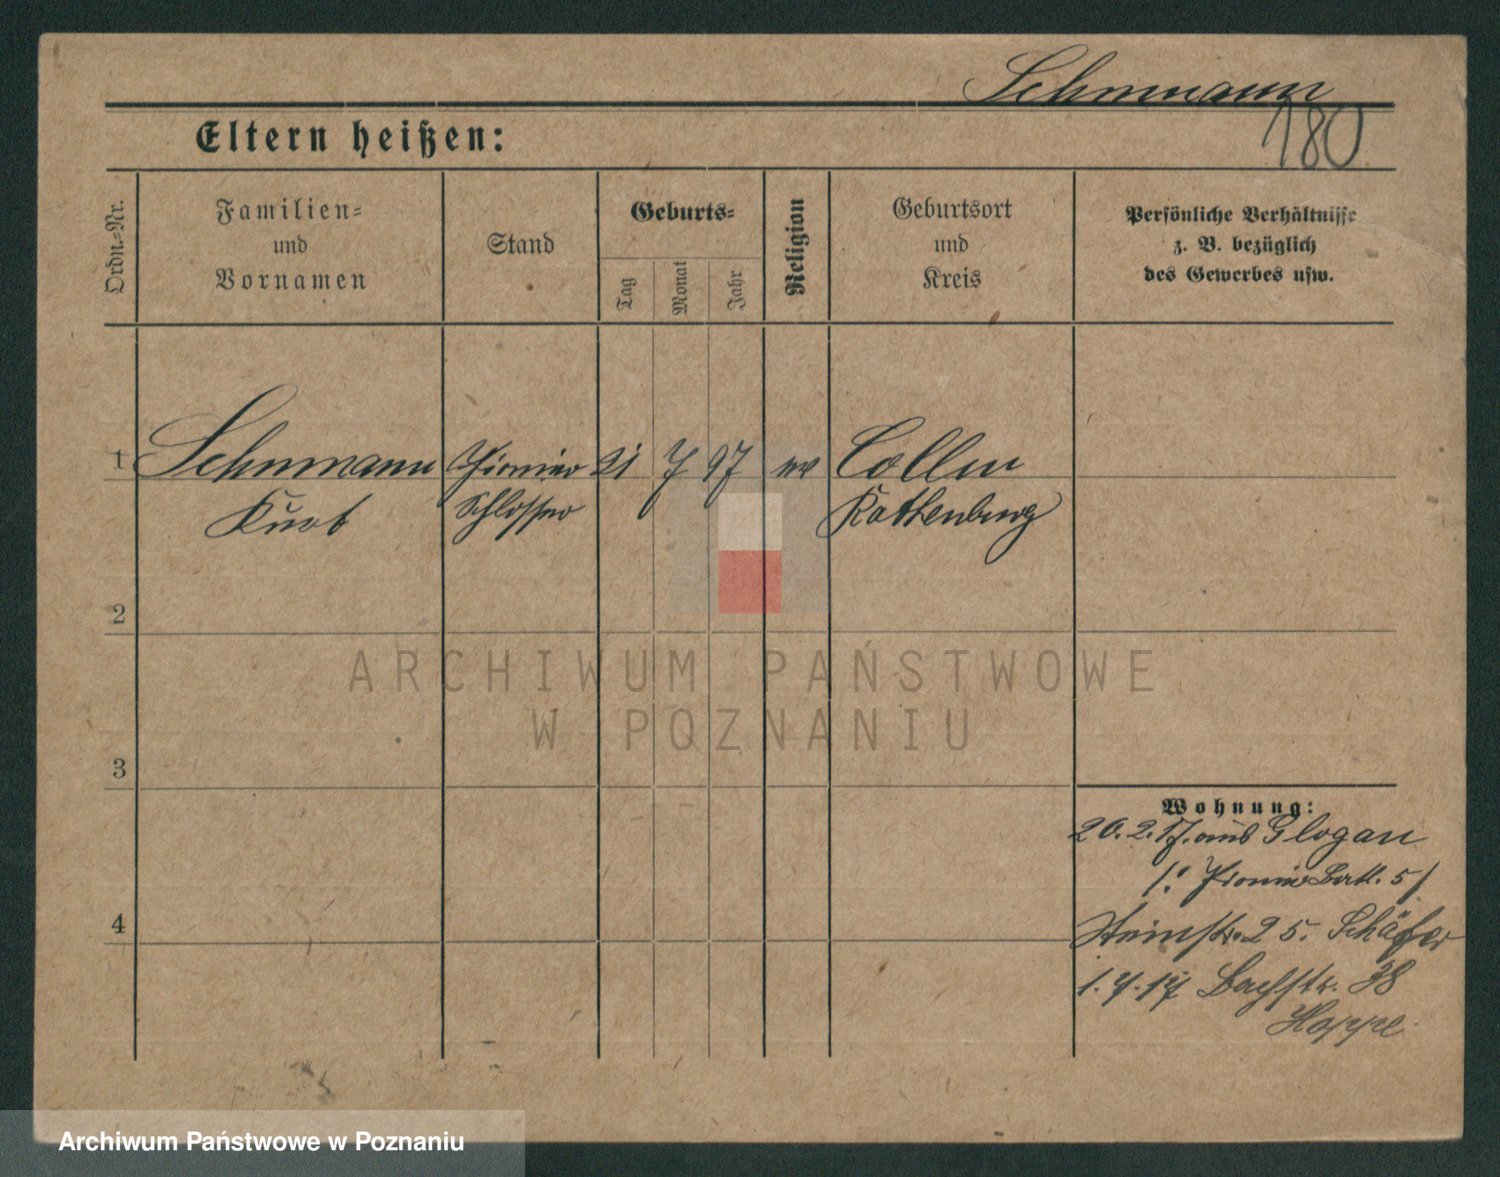 Schumann
180
Eltern heißen:
Ordn.-Nr.
Familien-
und
Vornamen
Stand
Geburts-
Tag
Monat
Jahr
Religion
Geburtsort
und
Kreis
Persönliche Verhältnisse
z. B. bezüglich
des Gewerbes usw.
1
Schumann Pionier 21 7 97 ev
Kurt Schlosser
Rothenburg
2
3
4
Wohnung:
20. 2. 17. aus Glogau
Pionier Batl. 5
Steinstr. 25. Schäfer
1. 4. 17 Bachstr. 38
Hoppe
ARCHIWUM PAŃSTWOWE
W POZNANIU
Archiwum Państwowe w Poznaniu